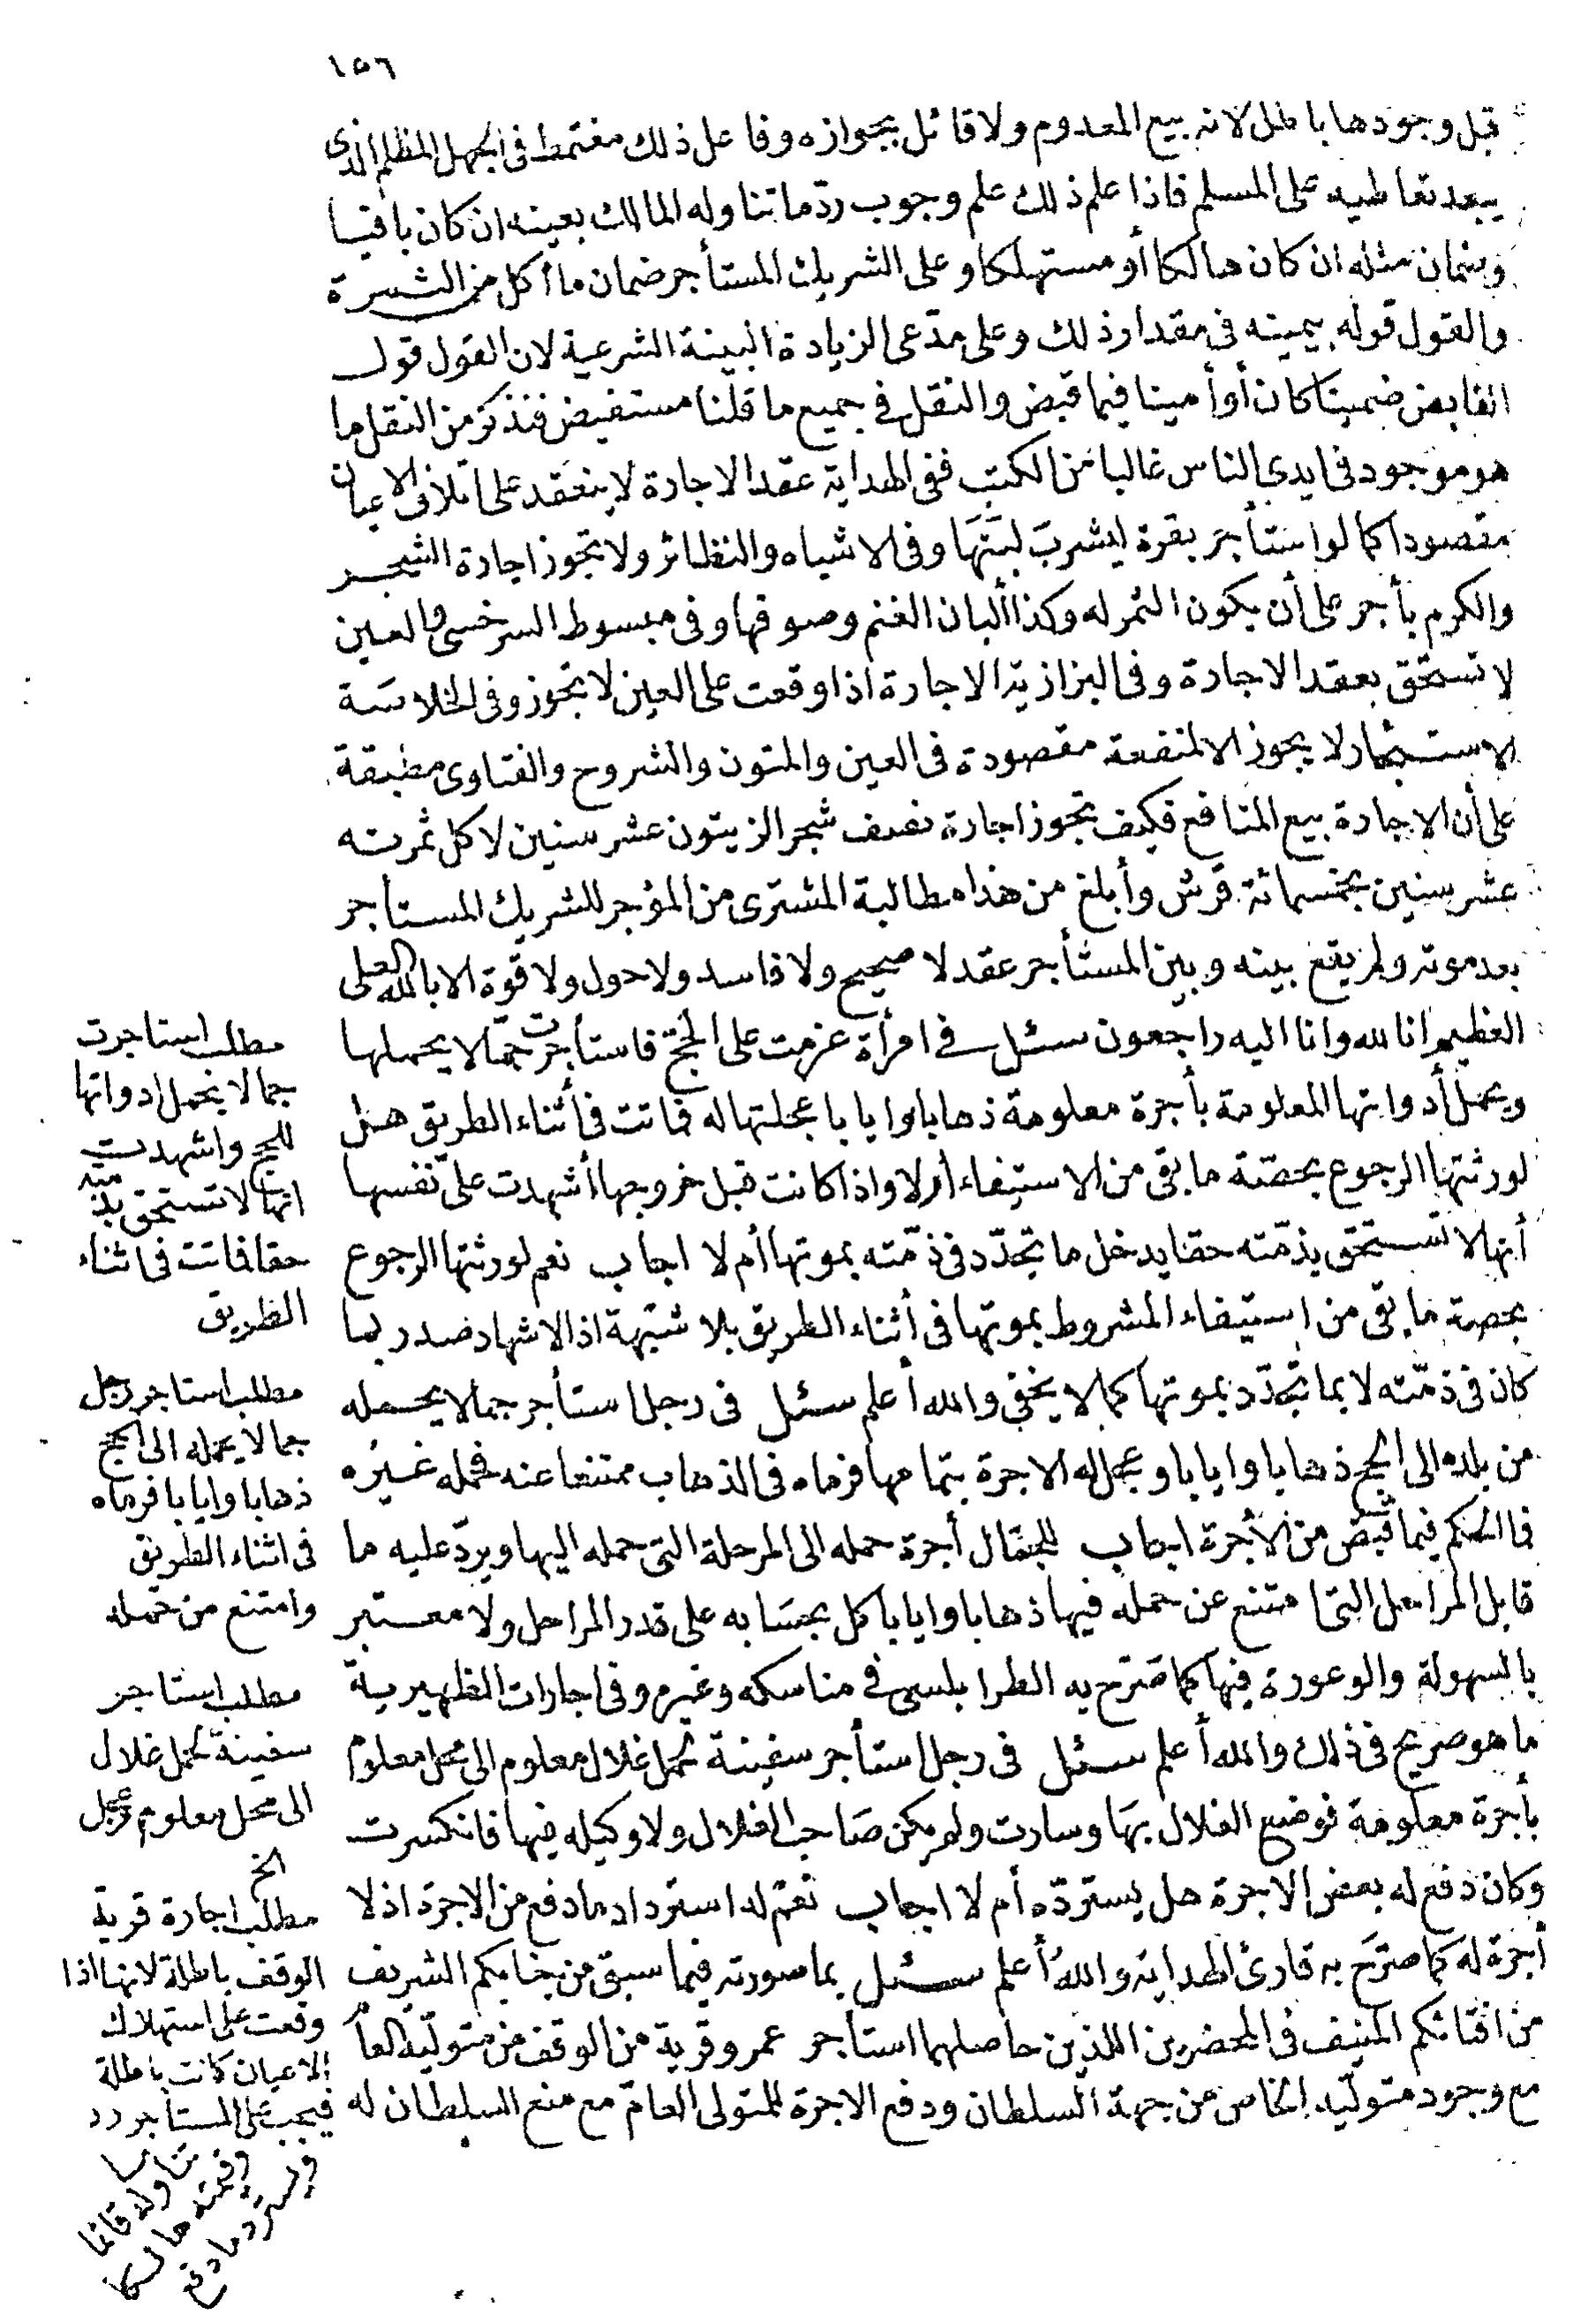 ١٥٦
قبل وجودها باطل لانه بيع المعدوم ولا قائل بجوازه وفاعل ذلك منغمط فى الجهل المظلم الذى
يبعد تعاطيه على المسلم فاذا علم ذلك علم وجوب ردّ ما تناوله المالك بعينه ان كان باقيا
وضمان مثله ان كان هالكا أو مستهلكا وعلى الشريك المستأجر ضمان ما أكل من الثمرة
والقول قوله بيمينه فى مقدار ذلك وعلى مدّعى الزيادة البينة الشرعية لان القول قول
القابض ضمينا كان أو أمينا فيما قبض والنقل فى جميع ما قلنا مستفيض فنذكر من النقل ما
هو موجود فى ايدى الناس غالبا من الكتب ففى الهداية عقد الاجارة لا ينعقد على اتلاف الاعيان
مقصودا كما لو استأجر بقرة ليشرب لبنها وفى الاشباه والنظائر ولا تجوز اجارة الشجر
والكرم بأجر على أن يكون الثمر له وكذا ألبان الغنم وصوفها وفى مبسوط السرخسى والعين
لا تستحق بعقد الاجارة وفى البزازية الاجارة اذا وقعت على العين لا تجوز وفى الخلاصة
الاستئجار لا يجوز الا لمنفعة مقصودة فى العين والمتون والشروح والفتاوى مطبقة
على أن الاجارة بيع المنافع فكيف تجوز اجارة نصف شجر الزيتون عشر سنين لاكل ثمرته
عشر سنين بخمسمائة قرش وأبلغ من هذا مطالبة المشترى من المؤجر للشريك المستأجر
بعد موته ولم يقع بينه وبين المستأجر عقد لا صحيح ولا فاسد ولا حول ولا قوّة الا بالله العلى
العظيم انا لله وانا اليه راجعون سئل فى امرأة عزمت على الحج فاستأجرت جمالا يحملها
ويحمل أدواتها المعلومة بأجرة معلومة ذهابا وايابا عجلتها له فماتت فى أثناء الطريق هل
لورثتها الرجوع بحصّة ما بقى من الاستيفاء أم لا واذا كانت قبل خروجها أشهدت على نفسها
أنها لا تستحق بذمّته حقا يدخل ما تجدّد فى ذمّته بموتها أم لا اجاب نعم لورثتها الرجوع
بحصة ما بقى من استيفاء المشروط بموتها فى أثناء الطريق بلا شبهة اذ الاشهاد صدر لما
كان فى ذمّته لا بما تجدّد بموتها كما لا يخفى والله أعلم سئل فى رجل استأجر جمالا يحمله
من بلده الى الحج ذهابا وايابا وعجل له الاجرة بتمامها فرماه فى الذهاب ممتنعا عنه فحمله غيره
فما الحكم فيما قبض من الأجرة اجاب للجمّال أجرة حمله الى المرحلة التى حمله اليها ويردّ عليه ما
قابل المراحل التى امتنع عن حمله فيها ذهابا وايابا كل بحسابه على قدر المراحل ولا معتبر
بالسهولة والوعورة فيها كما صرّح به الطرابلسى فى مناسكه وغيره وفى اجارات الظهيرية
ما هو صريح فى ذلك والله أعلم سئل فى رجل استأجر سفينة لحمل غلال معلوم الى محل معلوم
بأجرة معلومة فوضع الغلال بها وسارت ولم يكن صاحب الغلال ولا وكيله فيها فانكسرت
وكان دفع له بعض الاجرة هل يستردّه أم لا اجاب نعم له استرداد ما دفع من الاجرة اذ لا
أجرة له كما صرّح به قارئ الهداية والله أعلم سئل بما صورته فيما سبق من جنابكم الشريف
من افتائكم المنيف فى المحضرين اللذين حاصلهما استأجر عمرو قرية من الوقف من متوليه العام
مع وجود متوليه الخاص من جهة السلطان ودفع الاجرة للمتولى العامّ مع منع السلطان له
مطلب استاجرت
جمالا يحمل ادواتها
للحج واشهدت
انها لا تستحق بذمته
حقا فماتت فى اثناء
الطريق
مطلب استاجر رجل
جمالا يحمله الى الحج
ذهابا وايابا فرماه
فى اثناء الطريق
وامتنع من حمله
مطلب استاجر
سفينة لحمل غلال
الى محل معلوم وعجل
الخ
مطلب اجارة قرية
الوقف باطلة لانها اذا
وقعت على استهلاك
الاعيان كانت باطلة
فيجب على المستأجر رد
ما تناوله قائما
وقيمته هالكا
ويسترد ما دفع